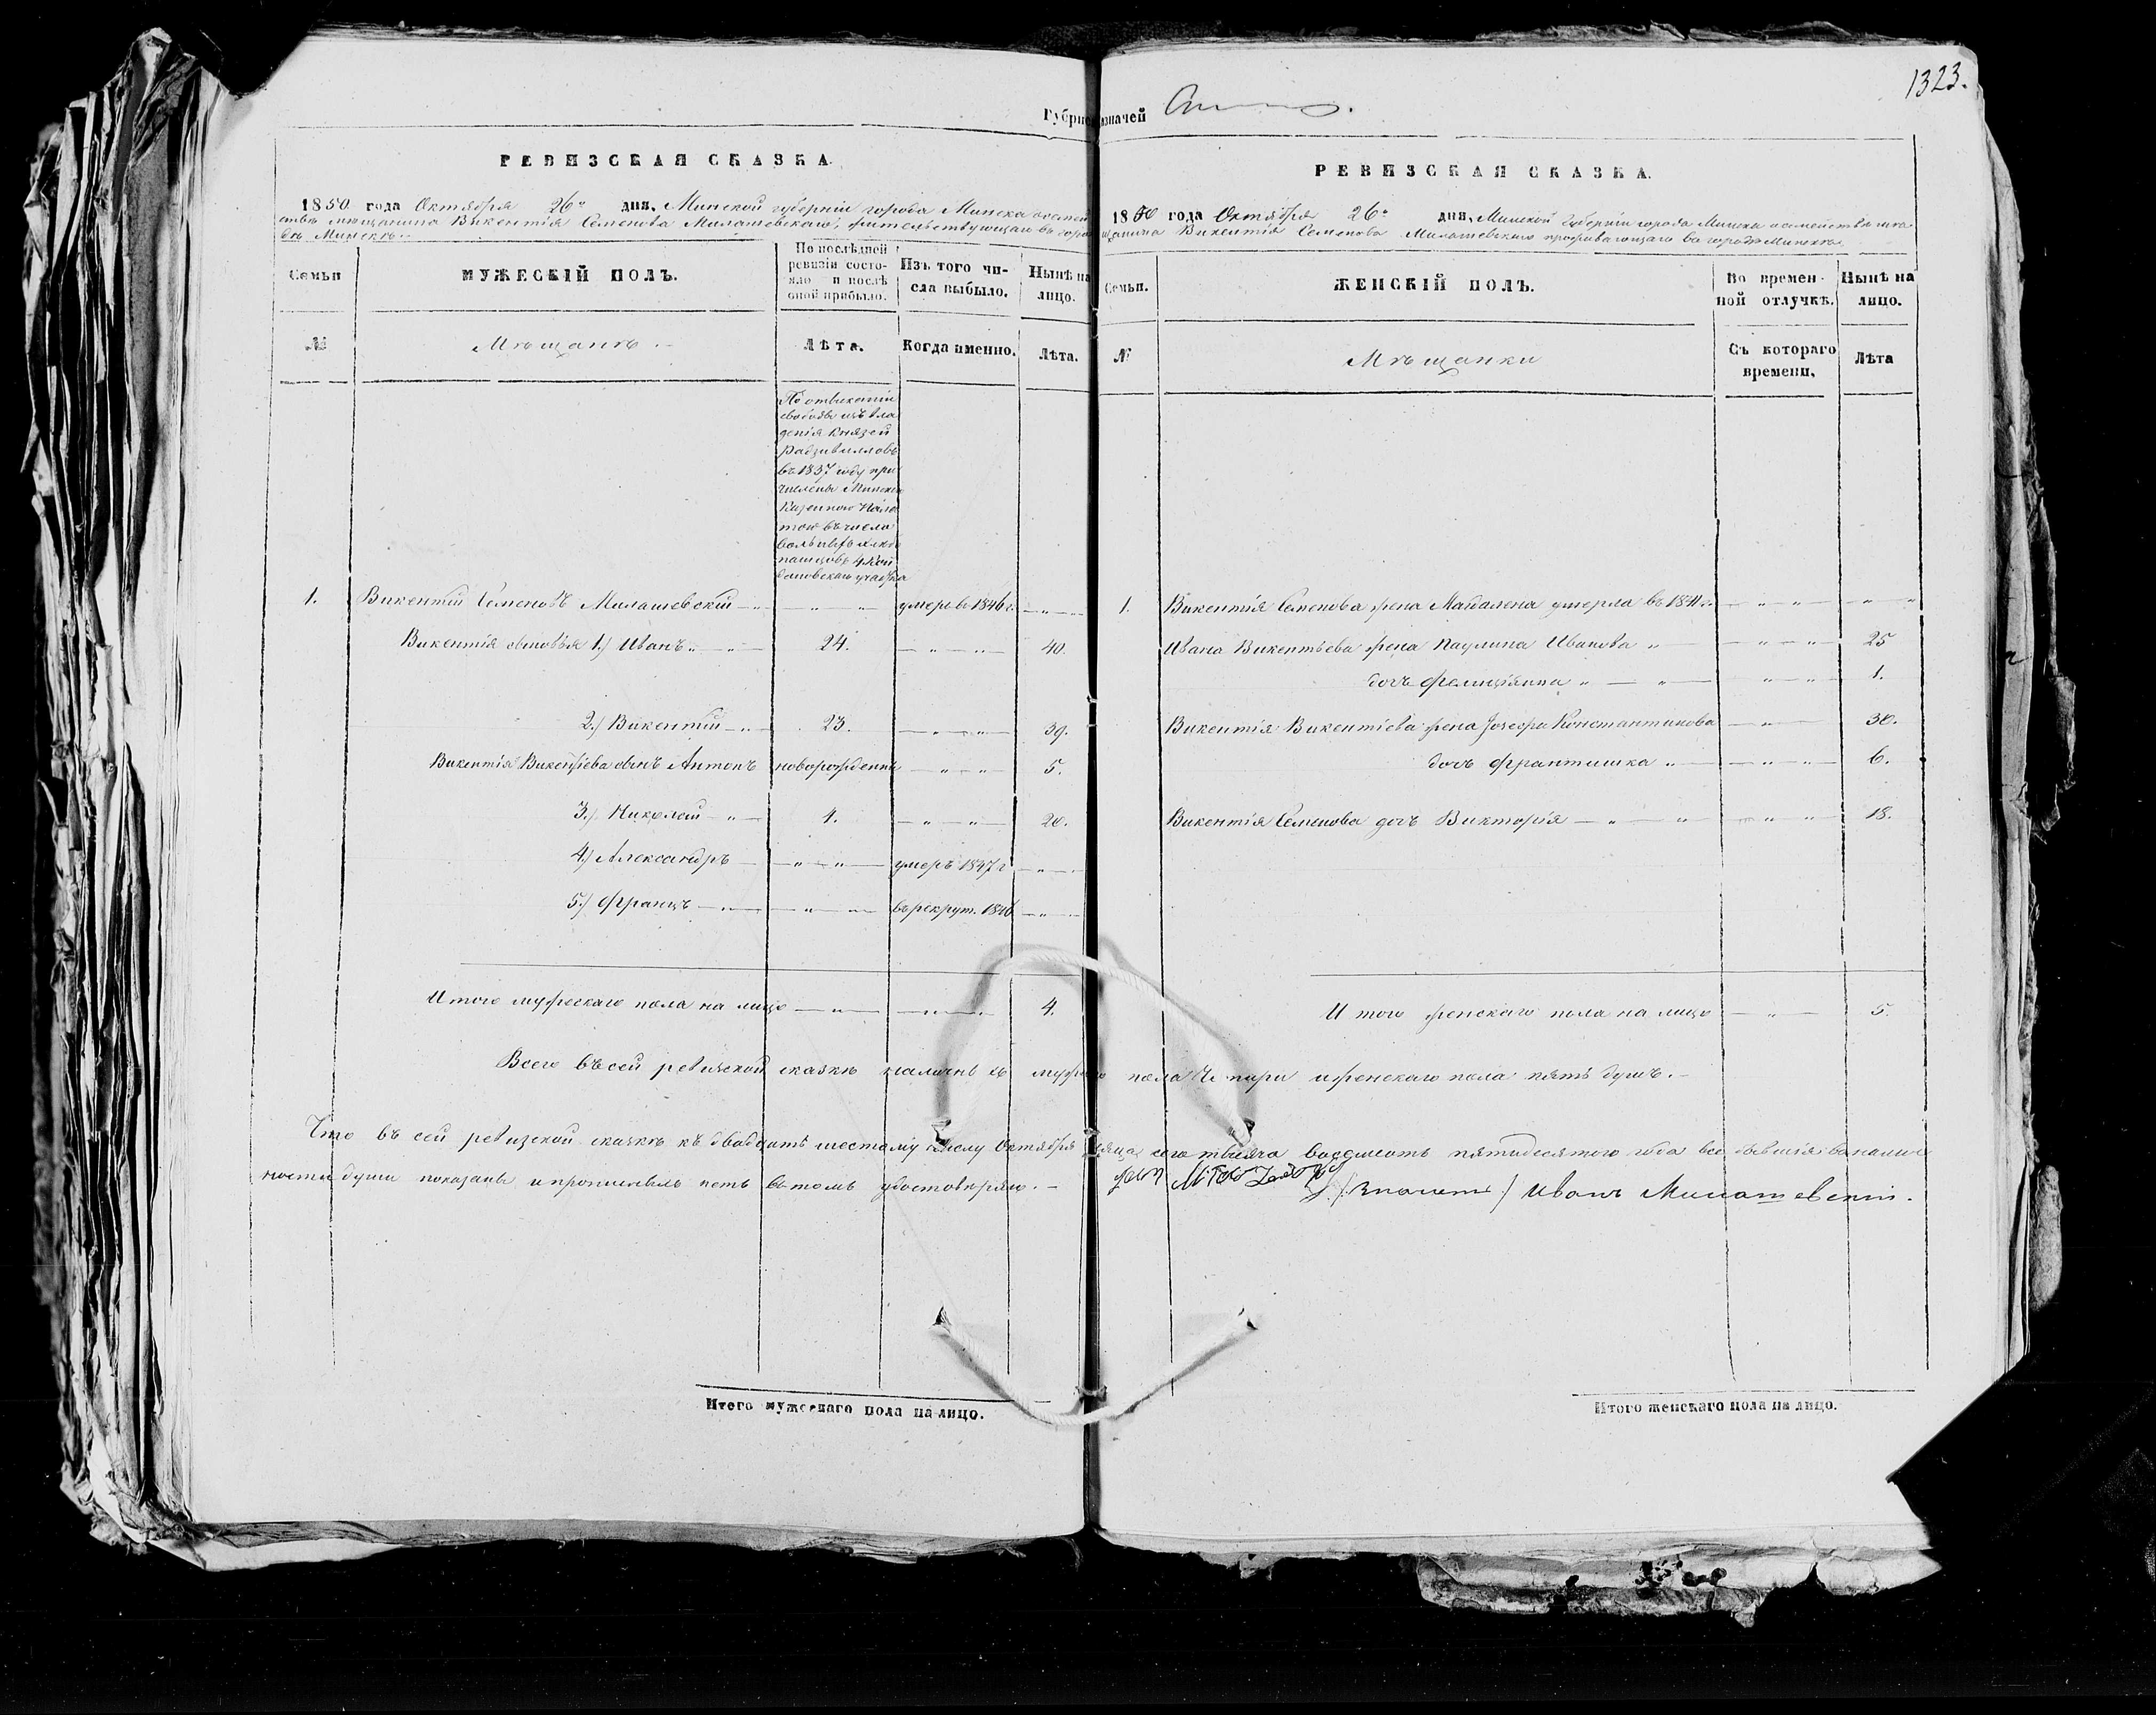 1323.
Губрн
азначей
РЕВИЗСКАЯ СКАЗКА.
1850 года Октября 26го дня, Минской губерніи города Минска о семей
ствѣ мѣщанина Викентія Семенова Милашевскаго, жительствующаго въ горо
дѣ Минскѣ.
Семьи
МУЖЕСКІЙ ПОЛЪ.
По послѣдней ревизіи состояло и послѣ оной прибыло.
Изъ того числа выбыло.
Нынѣ на лицо.
№
Мѣщанъ
Лѣта.
Когда именно.
Лѣта.
По отысканіи
свободы изъ вла
дѣнія Князей
Радзивилловъ
въ 1837 году при
числены Минскою
Казенною Пала
тою въ число
вольныхъ хлѣбо
пашцовъ 4 Кой
дановскаго участка
1. Викентій Семеновъ Милашевскій — " — " — умеръ въ 1846 г. — " —
Викентія сыновья 1.) Иванъ — " — 24. — " — " — 40.
2.) Викентій — " — 23. — " — " — 39.
Викентія Викентіева сынъ Антонъ новорожденный — " — " — 5.
3.) Николай — " — 4. — " — " — 20.
4.) Александръ — " — " — умеръ 1847 г — " —
5.) Францъ — " — " — въ рекрут. 1846 — " —
Итого мужескаго пола на лицо — " — — " — 4.
РЕВИЗСКАЯ СКАЗКА.
1850 года Октября 26го дня, Минской Губерніи города Минска о семействѣ мѣ
щанина Викентія Семенова Милашевскаго проживающаго въ городѣ Минскѣ.
Семьи.
ЖЕНСКІЙ ПОЛЪ.
Во временной отлучкѣ.
Нынѣ на лицо.
№
Мѣщанки
Съ котораго времени.
Лѣта
1. Викентія Семенова жена Магдалена умерла въ 1841 г. — " — " — " — "
Ивана Викентьева жена Паулина Иванова " — " — " — 25
дочь Фелиціанна " — " — " — " — 1.
Викентія Викентіева жена Іозефа Константинова — " — 30.
дочь Франтишка " — " — " — 6.
Викентія Семенова дочь Викторія — " — " — " — " 18.
Итого женскаго пола на лицо — " — 5.
Всего въ сей ревизской сказкѣ наличныхъ мужескаго пола четыри и женскаго пола пять душъ. —
Что въ сей ревизской сказкѣ къ двадцать шестому числу Октября мѣсяца сего тысяча восемьсотъ пятидесятого года все бывшія в налич
ности души показаны и прописныхъ нетъ въ томъ удостовѣряю. —
/ значитъ / Иванъ Милашевскій.
Итого мужескаго пола на лицо.
Итого женскаго пола на лицо.